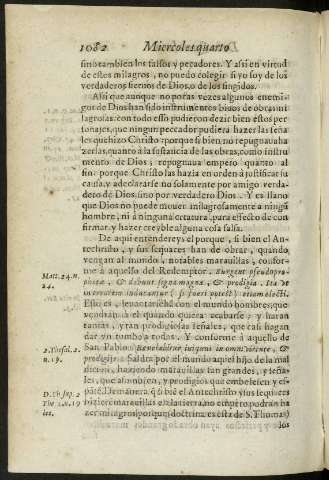 1082 Miercoles quarto
sino tambien los falsos y pecadores. Y assi en virtud
de estes milagros, no puedo colegir si yo soy de los
verdaderos siervos de Dios, o de los fingidos.
Assi que aunque no pocas vezes algunos enemi-
gos de Dios han sido instrumentos bivos de obras mi
lagrosas, con todo esso pudieron dezir bien estos per
sonajes, que ningun peccador pudiera hazer las seña
les que hizo Christo: porque si bien no repugnava ha
zerlas, quanto à la sustancia de las obras, como instru
mento de Dios; repugnava empero quanto al
fin: porque Christo las hazia en orden à justificar su
causa, y à declararse no solamente por amigo verda-
dero de Dios sino por verdadero Dios. Y es llano
que Dios no puede mover milagrosamente à ningũ
hombre, ni à ninguna criatura, para effecto de con
firmar, y hazer creyble alguna cosa falsa.
De aqui entendereys el porque, si bien el An-
techristo, y sus sequaces han de obrar, quando
vengan al mundo, notables maravillas, confor-
Matt. 24. n. 24.
me à aquello del Redemptor. Surgent pseudopro-
phetæ, & dabunt signa magna, & prodigia, ita ut
in errorem inducantur (si fieri potest) etiam electi.
Esto es, levantarsehã con el mundo hombres, que
vendràn à el quando quiera acabarse: y haràn
tantas, y tan prodigiosas señales, que casi hagan
dar un tumbo à todas. Y conforme à aquello de
2. Thessal. 2. n. 19.
San Pablo. Revelabitur iniquus in omni virtute, &
prodigijs. Saldra por el mundo aquel hijo de la mal
dicion, haziendo maravillas tan grandes, y seña-
les, que assombren, y prodigios que embelesen y es-
D. Th. sup. 2 The. 2. n. 19 lec.
pãte. De manera, q̃ si bie el Antechristo y sus sequaces
hizierẽ maravillas en la tierra, no empero podràn ha
zer milagros (porque es doctrina es esta de S. Thomas)
los